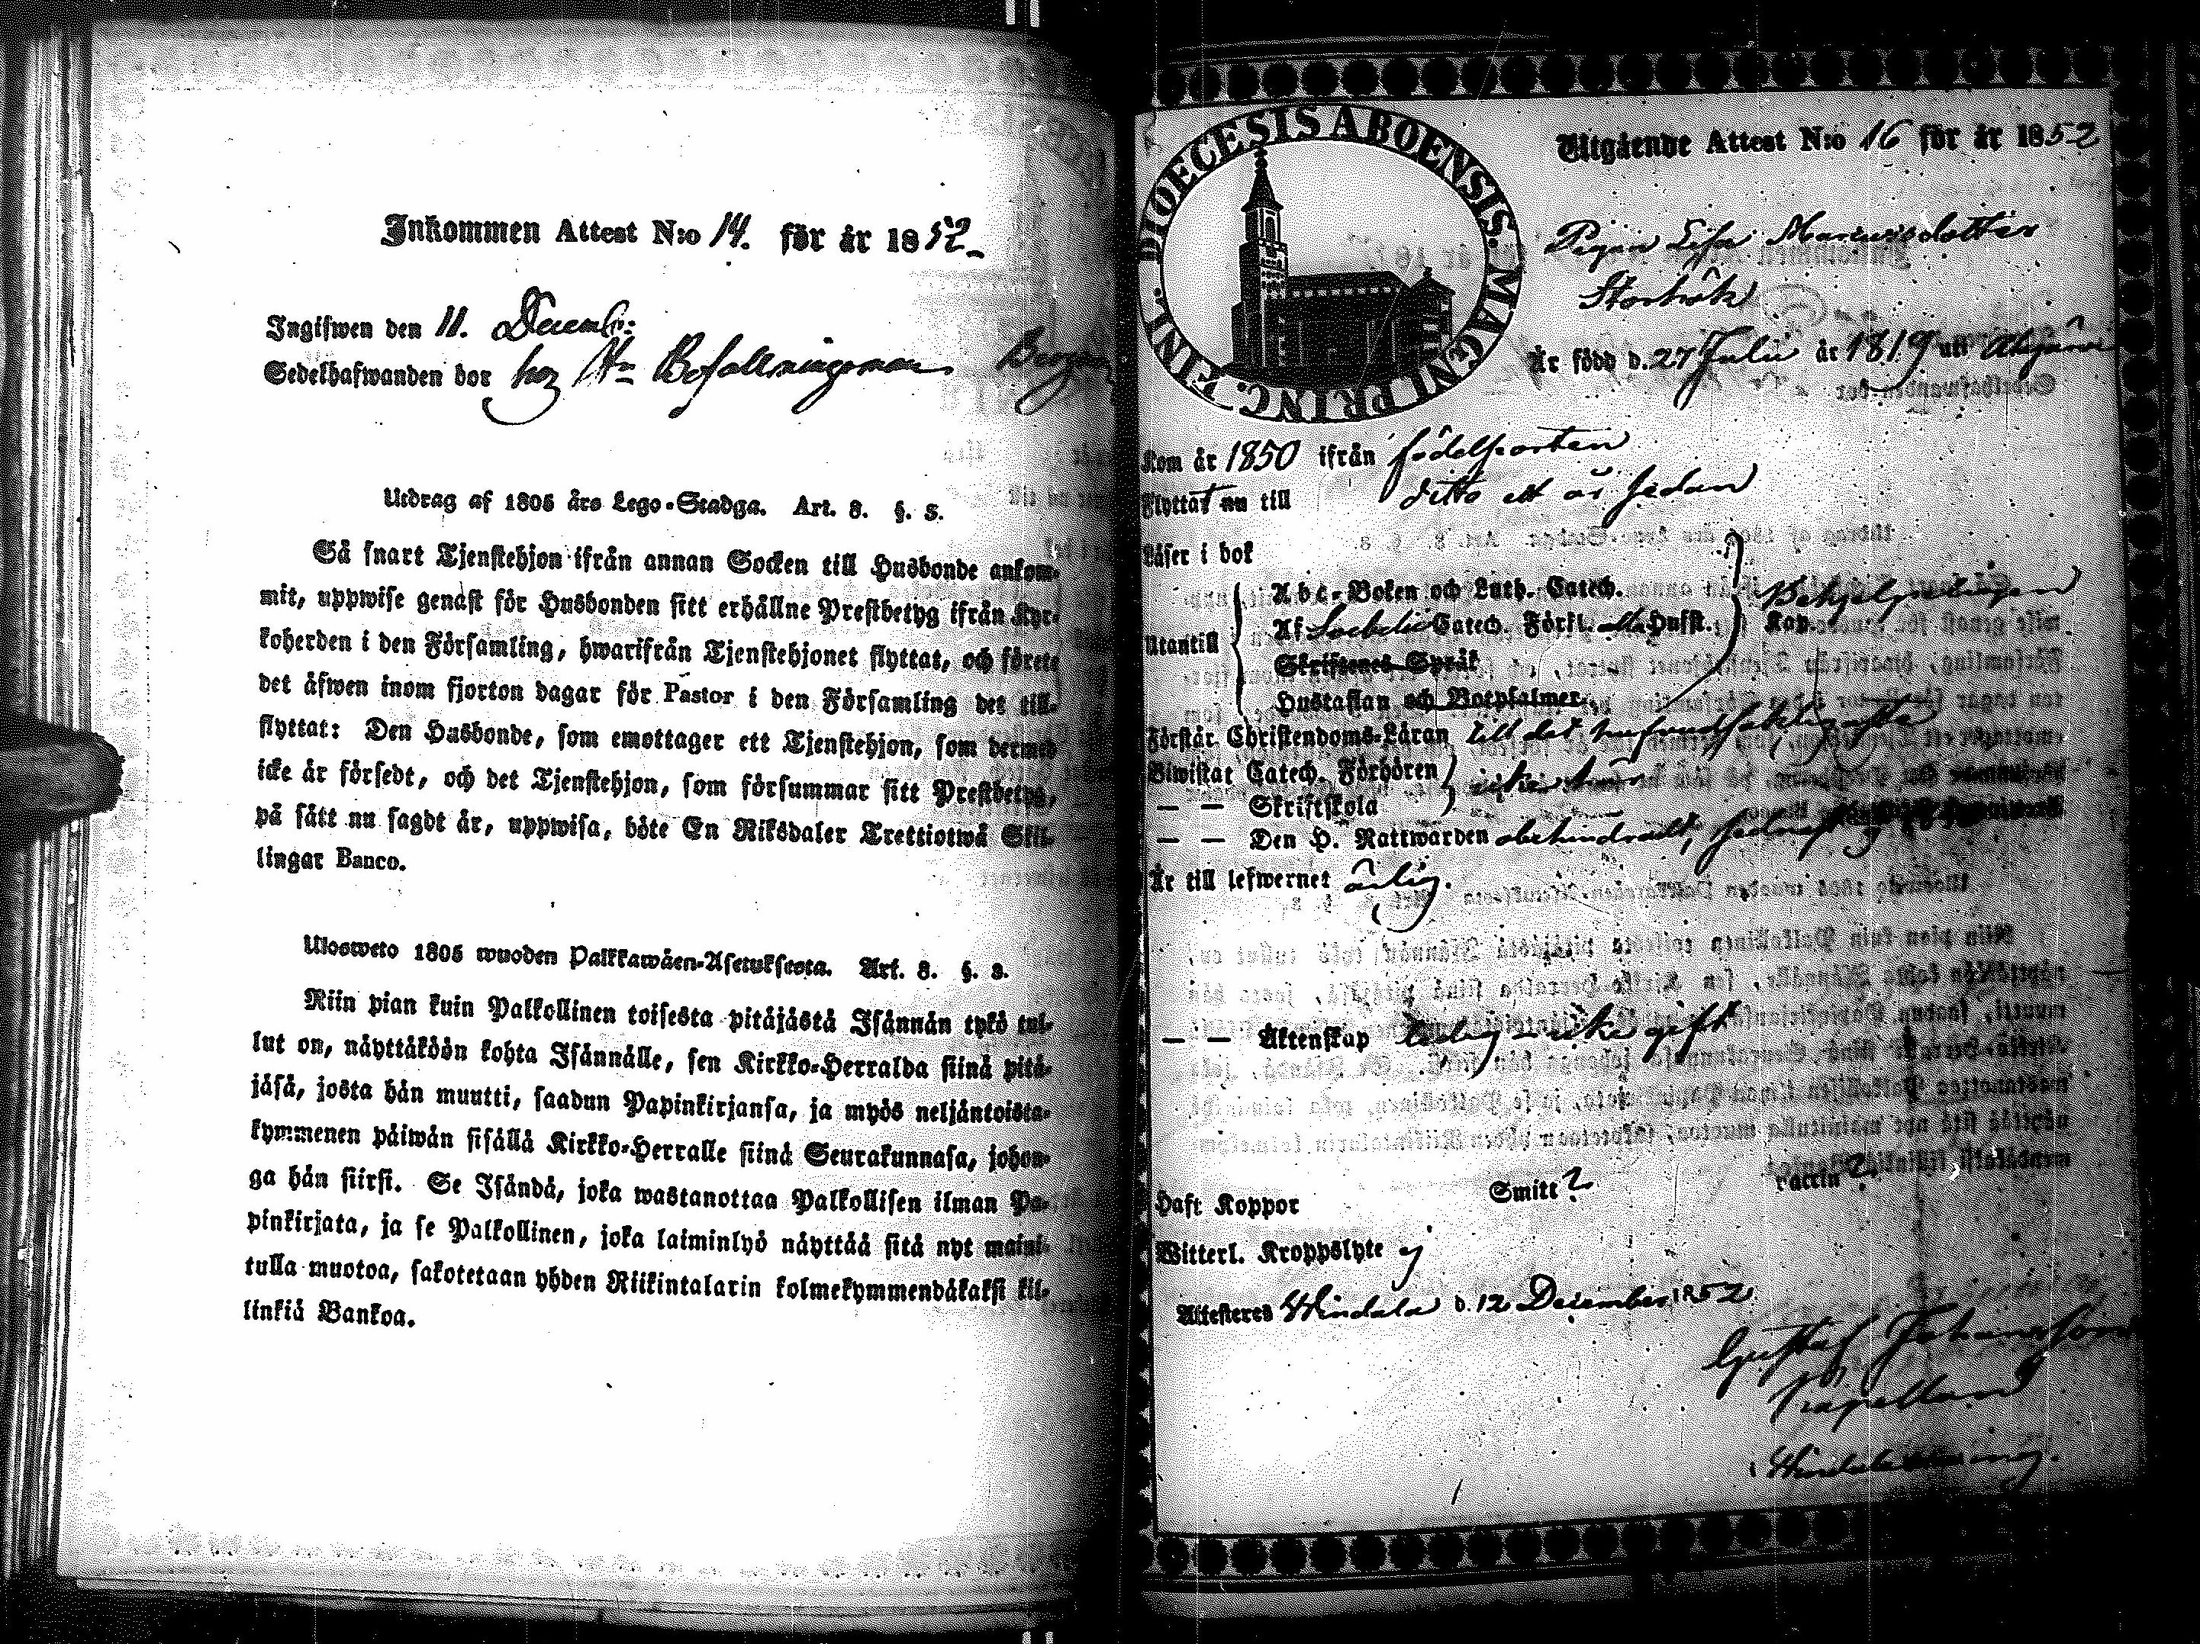 Inkommen Attest N:o 14. för år 1852
Ingifwen den 11. Decemb:
Sedelhafwanden bor hos Hn Befallningsman
Utdrag af 1805 års Lego-Stadga. Art. 8. §. 3.
Så snart Tjenstehjon ifrån annan Socken till Husbonde ankom-
mit, uppwise genast för Husbonden sitt erhållne Prestbetyg ifrån Kyr-
koherden i den Församling, hwarifrån Tjenstehjonet flyttat, och förete
det äfwen inom fjorton dagar för Pastor i den Församling det till-
flyttat: Den Husbonde, som emottager ett Tjenstehjon, som dermed
icke är försedt, och det Tjenstehjon, som försummar sitt Prestbetyg,
på sätt nu sagdt är, uppwisa, böte En Riksdaler Trettiotwå Skil-
lingar Banco.
Ulosweto 1805 wuoden Palkkawäen-Asetuksesta. Art. 8. §. 3.
Niin pian kuin Palkollinen toisesta pitäjästä Isännän tykö tul-
lut on, näyttäköön kohta Isännälle, sen Kirkko-Herralda siinä pitä-
jäsä, josta hän muutti, saadun Papinkirjansa, ja myös neljäntoista-
kymmenen päiwän sisällä Kirkko-Herralle siinä Seurakunnasa, johon-
ga hän siirsi. Se Isändä, joka wastanottaa Palkollisen ilman Pa-
pinkirjata, ja se Palkollinen, joka laiminlyö näyttää sitä nyt maini-
tulla muotoa, sakotetaan yhden Riikintalarin kolmekymmendäkaksi kil-
linkiä Bankoa.
DIOECESIS ABOENSIS. MAGNI PRINC. FINL.
Utgående Attest N:o 16 för år 1852
Pigan Lisa
Är född d. 27 Julii år 1819 uti
Kom år 1850 ifrån födelseorten
Flyttat nu till ditto ett år sedan
Läser i bok
Utantill
Abc-Boken och Luth. Catech.
Af Catech. Förkl. Husst. Kap.
Skriftenes Språk
Hustaflan och Botpsalmer.
Förstår Christendoms-Läran till det
Biwistat Catech. Förhören
— — Skriftskola
— — Den H. Nattwarden obehindradt, sednast
Är till lefwernet ärlig.
— — Äktenskap ledig icke gift
Haft Koppor Smitt? Vaccin?
Witterl. Kroppslyte ej
Attesteres Hindala d. 12 December 1852
Gustaf Johansson
Kapellan